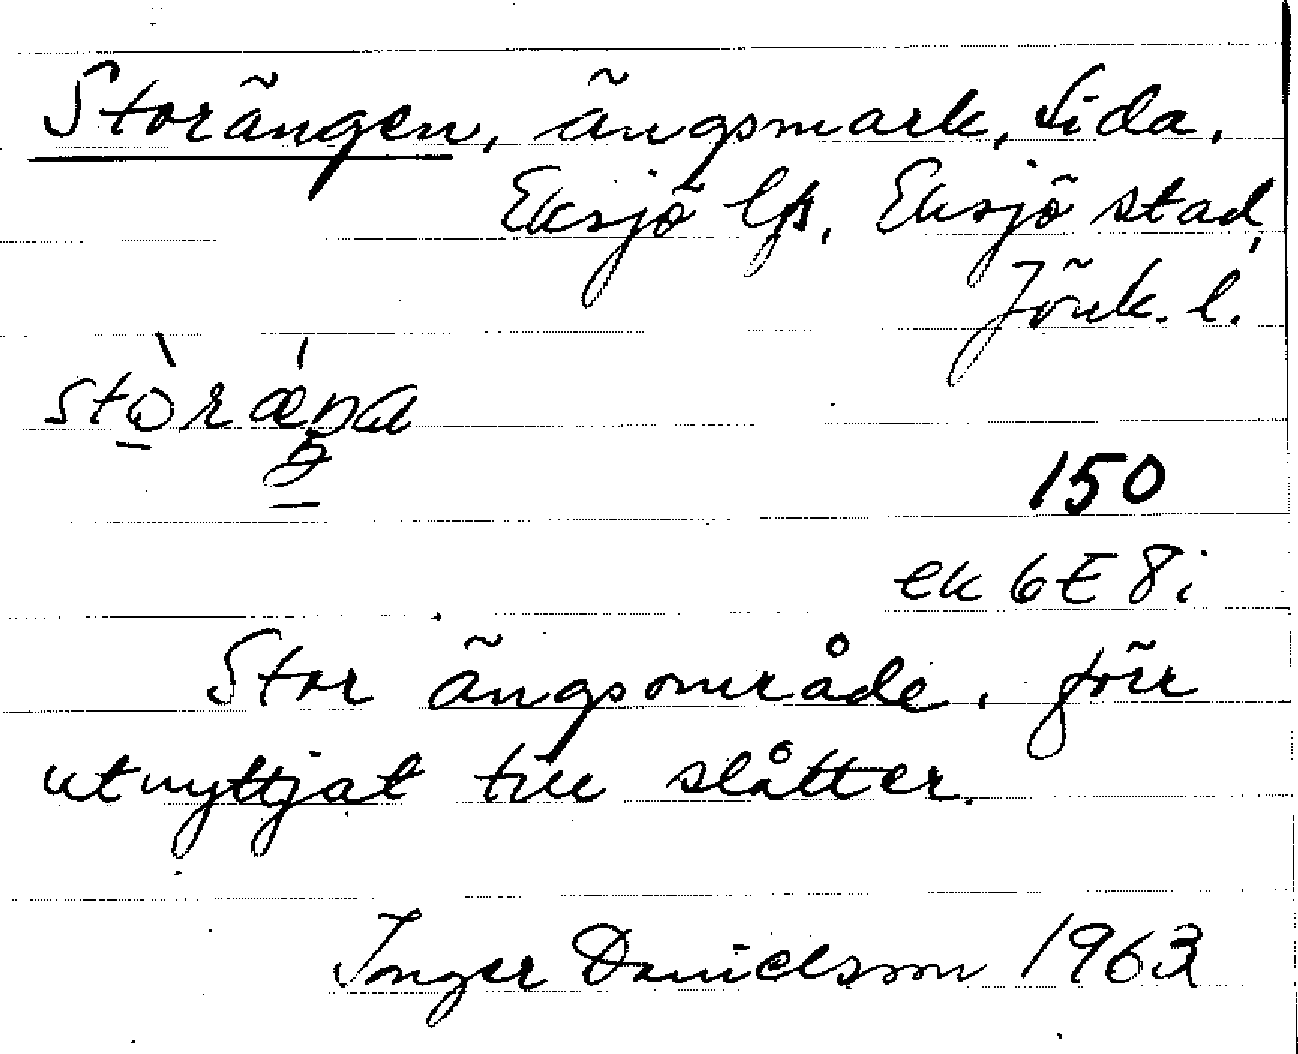 Storängen, ängsmark, Lida,
Eksjö lfs, Eksjö stad,
Jönk. l.
stòrǽŋa
150
ek 6E 8i
Stor ängsområde, förr
utnyttjat till slåtter.
Inger Danielsson 1963